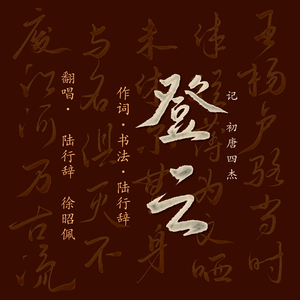 记 初唐四杰
登云
作词·书法·陆行辞
翻唱·陆行辞 徐昭佩
王杨卢骆当时
体轻薄为文哂
未休尔曹身
与名俱灭不
废江河万古流